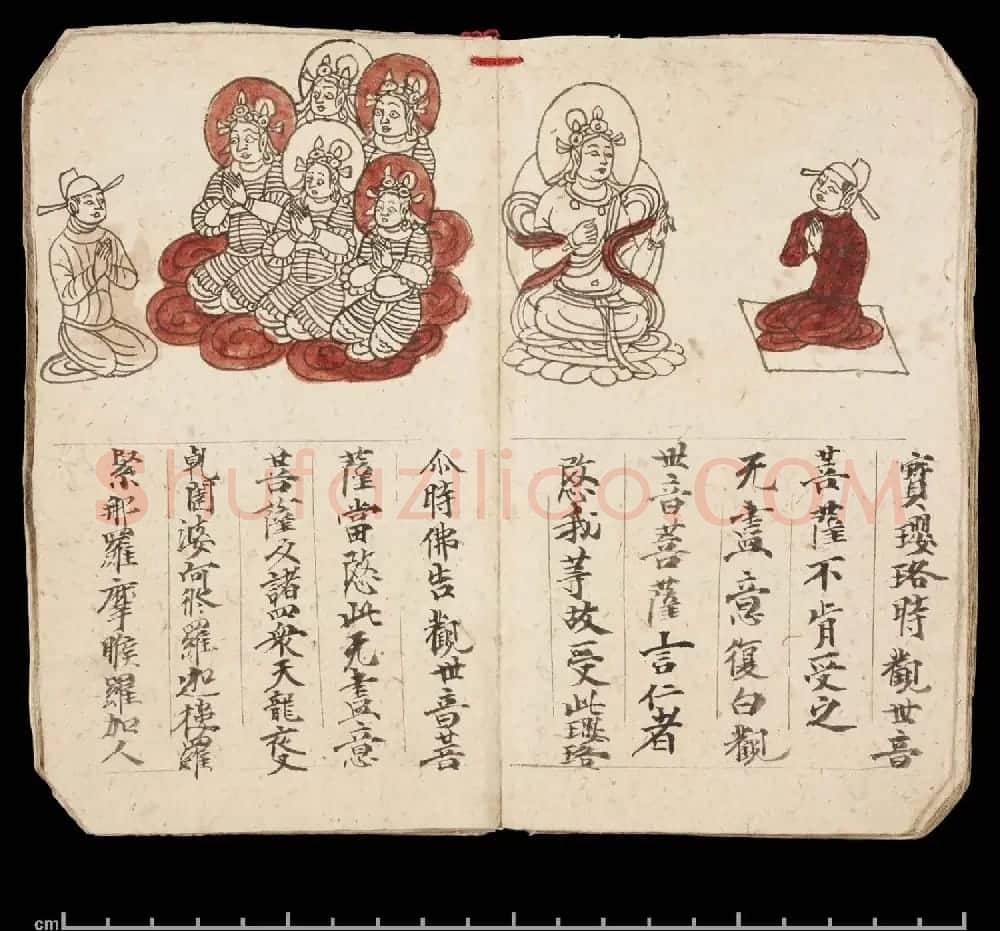 寶瓔珞時觀世音
菩薩不肯受之
无盡意復白觀
世音菩薩言仁者
愍我等故受此瓔珞
尒時佛告觀世音菩
薩當愍此无盡意
菩薩及諸四衆天龍夜叉
乹闥婆阿修羅迦樓羅
緊那羅摩睺羅加人
Shufaziliao.COM
cm